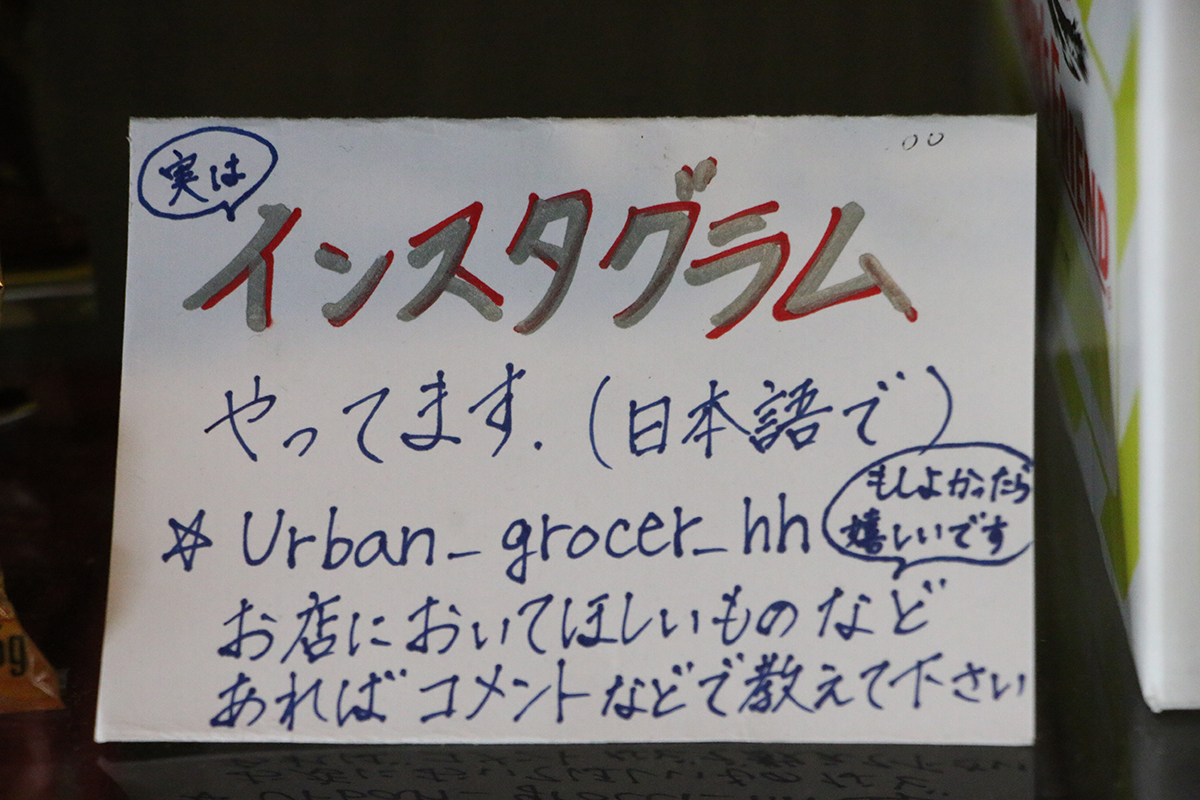 実は
インスタグラム
やってます.(日本語で)
☆ Urban_grocer_hh
もしよかったら
嬉しいです
お店においてほしいものなど
あればコメントなどで教えて下さい